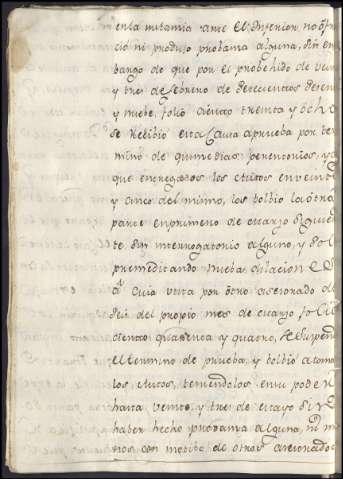 en la misma ante el Inferior no ofre
ció ni produjo probanza alguna, sin em
bargo de que por el probehido de vein
y tres de febrero de setecientos
y nuebe, folio ciento treinta y ocho
se Recibio esta Causa aprueba por ter
mino de quinse dias perentorios, y
que entregados los autos en veinte
y cinco del mismo, los bolbio la otra
parte en primero de Marzo siguien
te sin interrogatorio alguno, y solo
premeditando nueba dilacion
à cuia vista por otro
seis del propio mes de Marzo folio
ciento quarenta y quatro, se suspend
el termino de prueba, y bolbio a tomar
los autos, teniendolos en su poder
hasta veinte y tres de Mayo sin
haber hecho probanza alguna, ni me
nos con motibo de otros